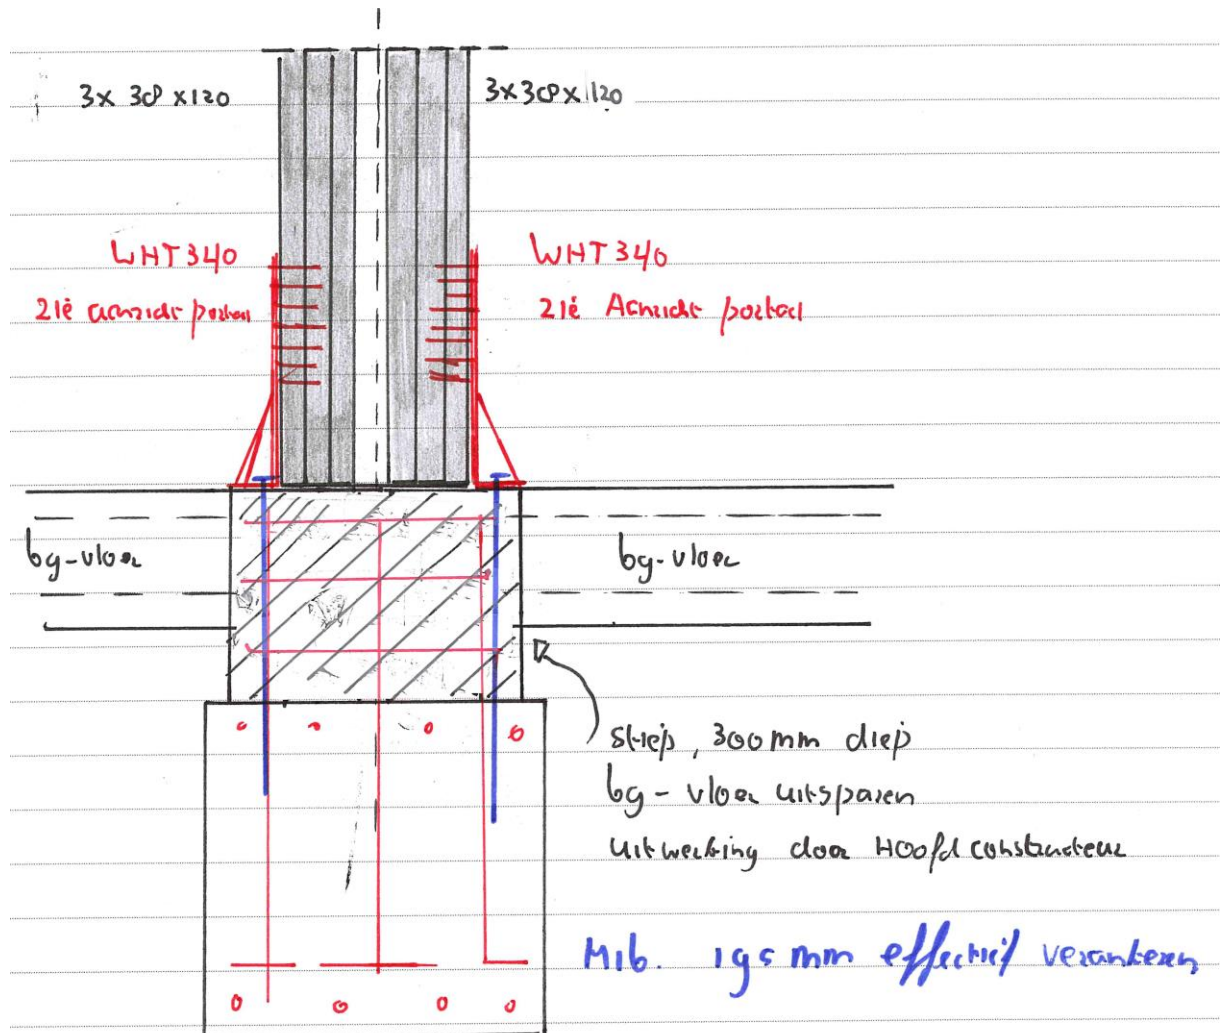 3x 38 x120
3x38x120
WHT340
WHT340
21é aanzicht portaal
21é Aanzicht portaal
bg-vloer
bg-vloer
Striep, 300mm diep
bg-vloer uitsparen
uitwerking door Hoofdconstructeur
M16. 195 mm effectief verankeren